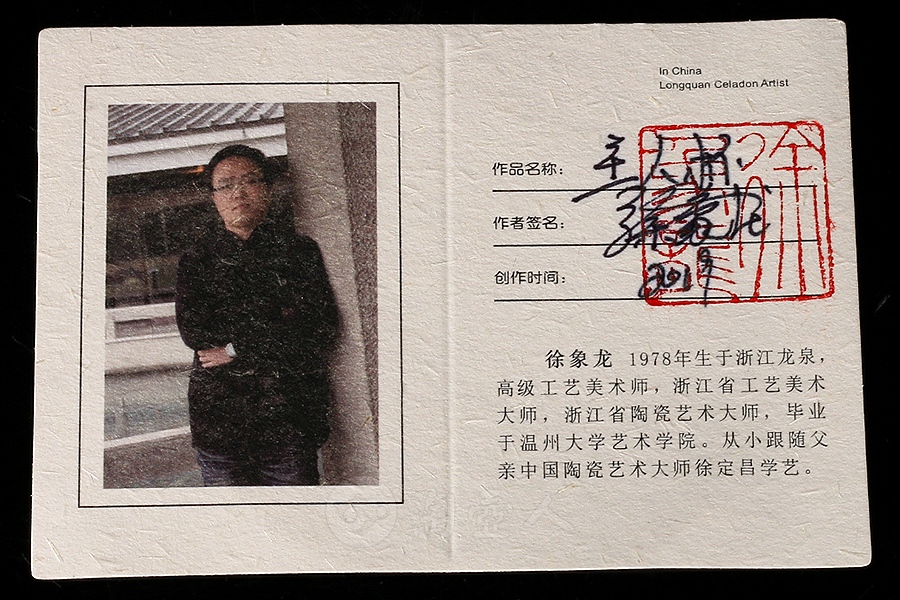 In China
Longquan Celadon Artist
作品名称：主人杯
作者签名：徐象龙
创作时间：2019
徐象龙 1978年生于浙江龙泉，
高级工艺美术师，浙江省工艺美术
大师，浙江省陶瓷艺术大师，毕业
于温州大学艺术学院。从小跟随父
亲中国陶瓷艺术大师徐定昌学艺。